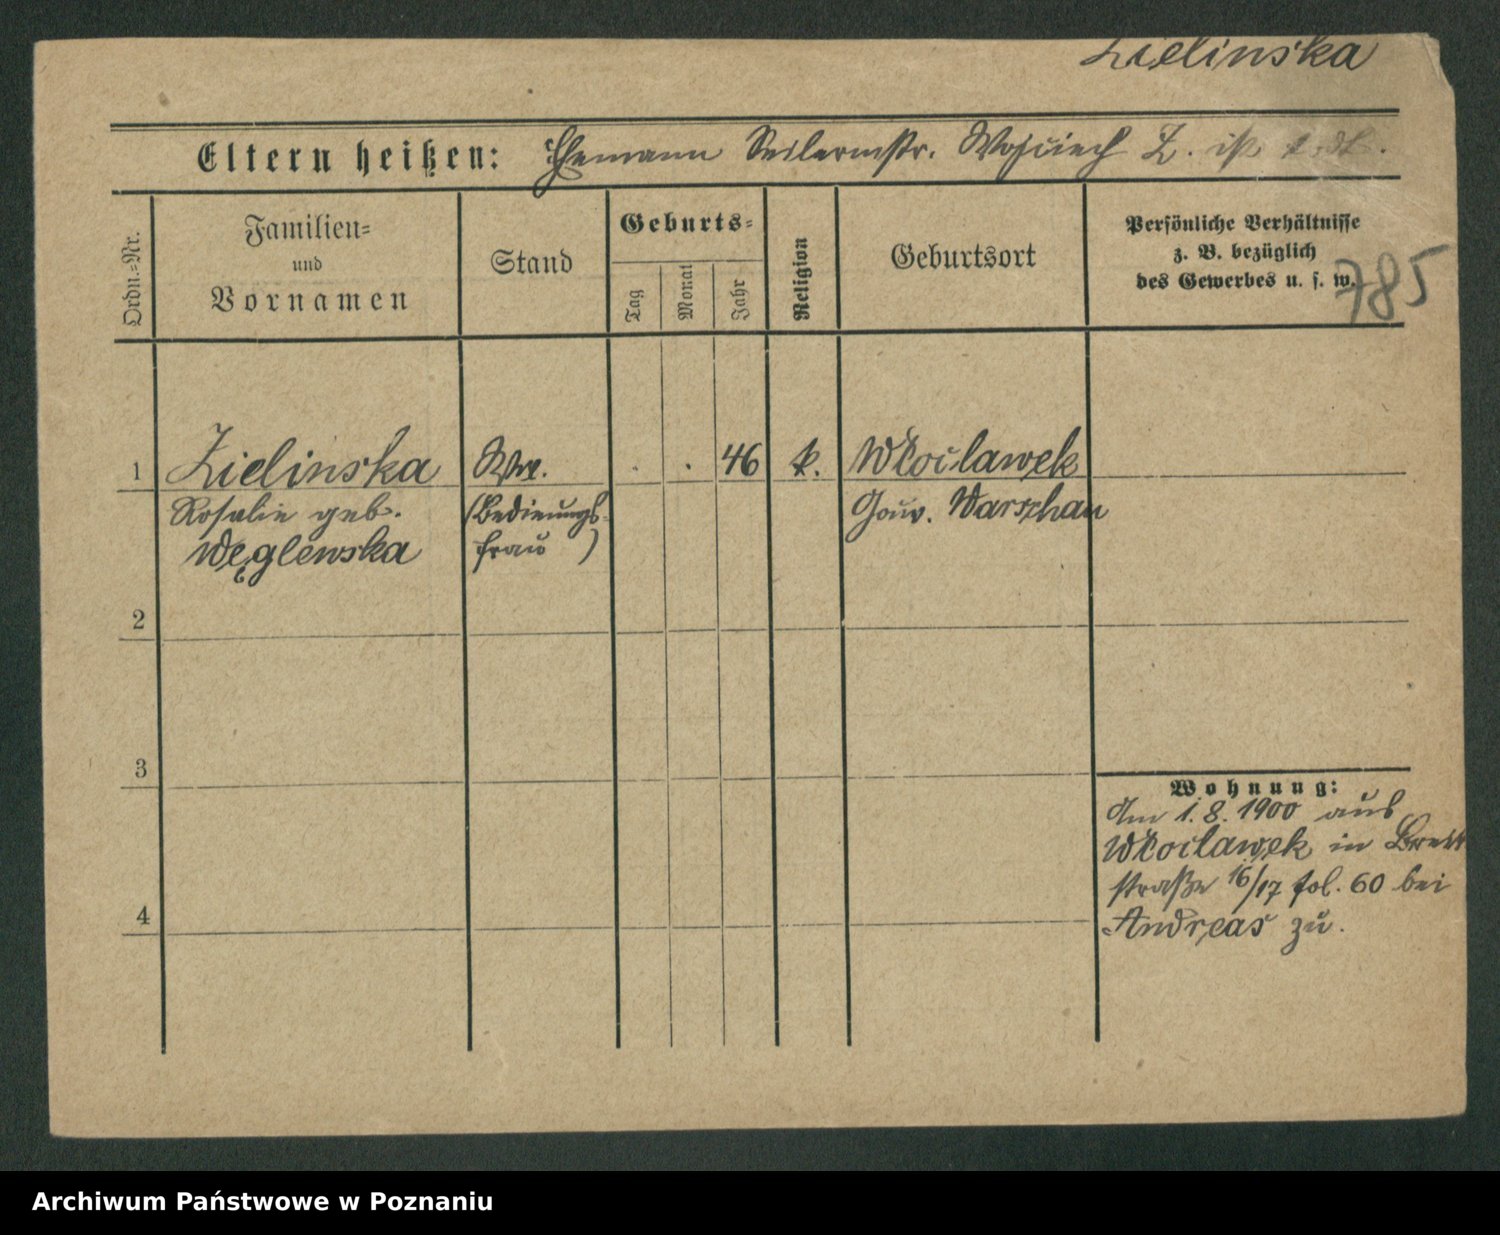 Zielinska
Eltern heißen: Ehemann Seilermstr. Wojciech Z. ist
Ordn.-Nr.
Familien- und Vornamen
Stand
Geburts-
Tag
Monat
Jahr
Religion
Geburtsort
Persönliche Verhältnisse
z. B. bezüglich
des Gewerbes u. s. w.
785
1 Zielinska Ww. . . 46 k. Włocławek
Rosalie geb. (Bedienungs- Gouv. Warschau
Węglewska frau)
2
3
Wohnung:
Am 1.8.1900 aus
Włocławek in Breite
straße 16/17 fol. 60 bei
4
Andreas zu.
Archiwum Państwowe w Poznaniu